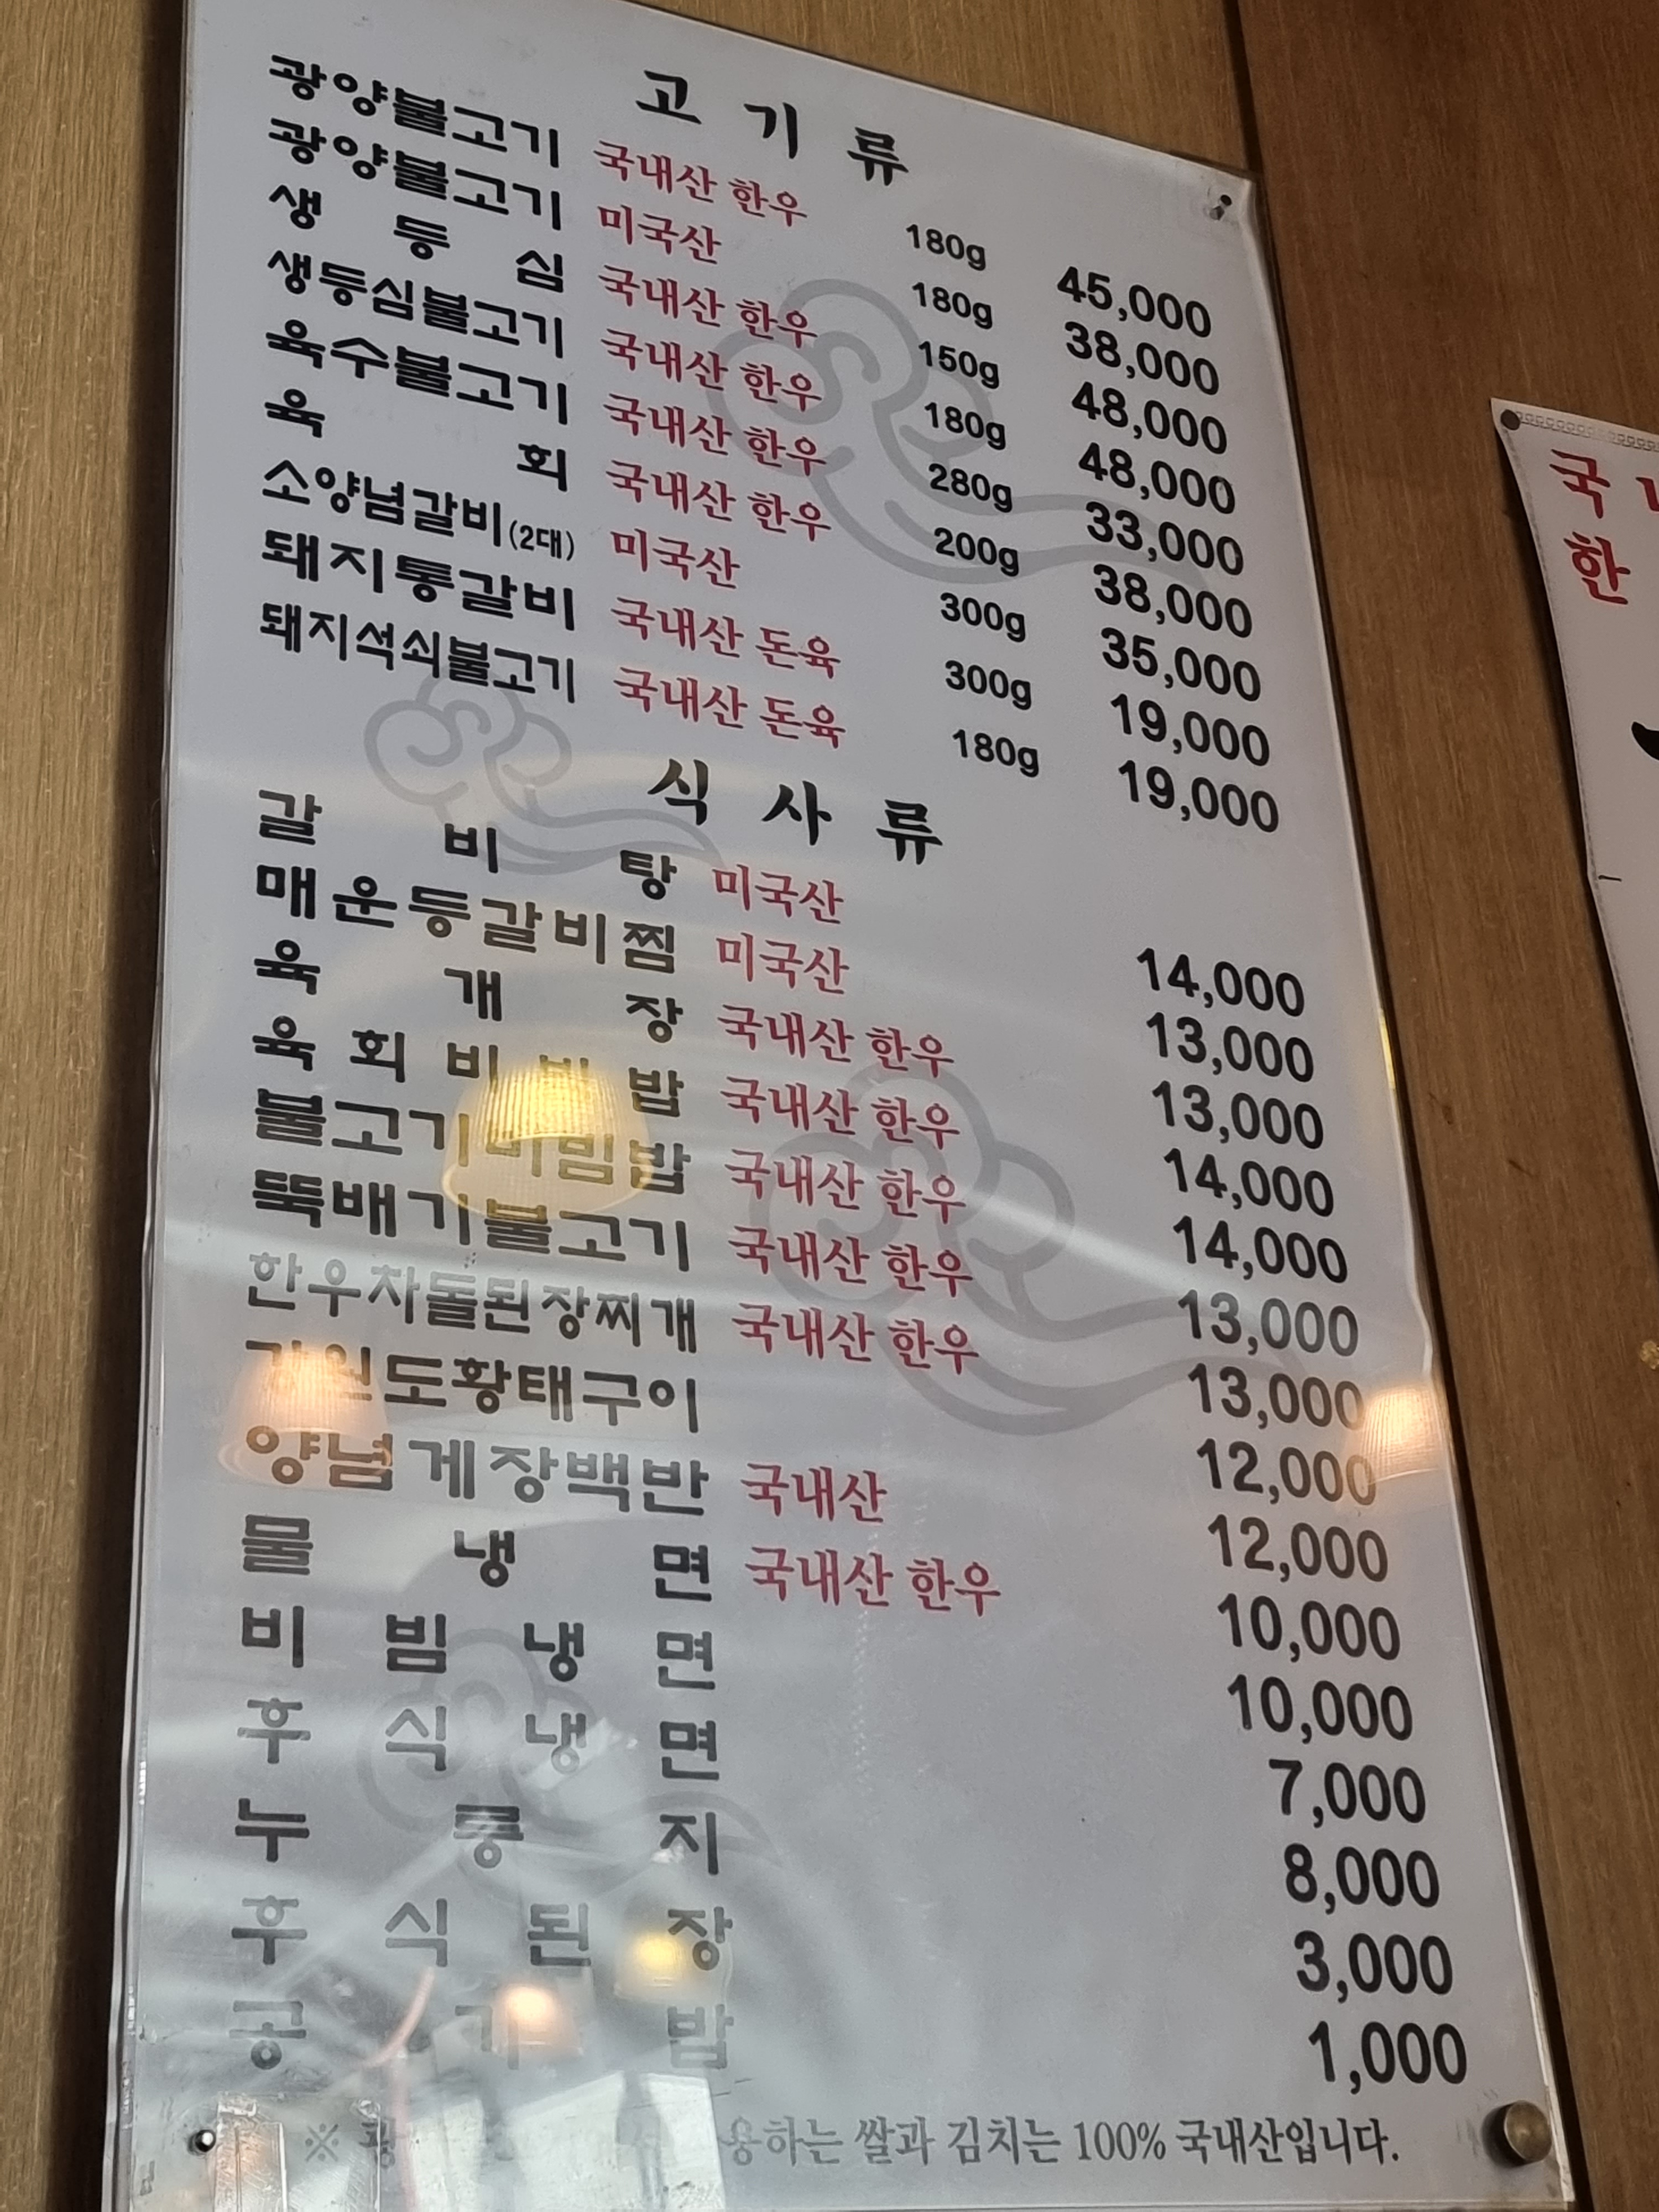 고기류
광양불고기 국내산 한우 180g 45,000
광양불고기 미국산 180g 38,000
생등심 국내산 한우 150g 48,000
생등심불고기 국내산 한우 180g 48,000
육수불고기 국내산 한우 280g 33,000
육회 국내산 한우 200g 38,000
소양념갈비(2대) 미국산 300g 35,000
돼지통갈비 국내산 돈육 300g 19,000
돼지석쇠불고기 국내산 돈육 180g 19,000
식사류
갈비탕 미국산 14,000
매운등갈비찜 미국산 13,000
육개장 국내산 한우 13,000
육회비빔밥 국내산 한우 14,000
불고기비빔밥 국내산 한우 14,000
뚝배기불고기 국내산 한우 13,000
한우차돌된장찌개 국내산 한우 13,000
강원도황태구이 12,000
양념게장백반 국내산 12,000
물냉면 국내산 한우 10,000
비빔냉면 10,000
후식냉면 7,000
누룽지 8,000
후식된장 3,000
공기밥 1,000
※ 용하는 쌀과 김치는 100% 국내산입니다.
국
한